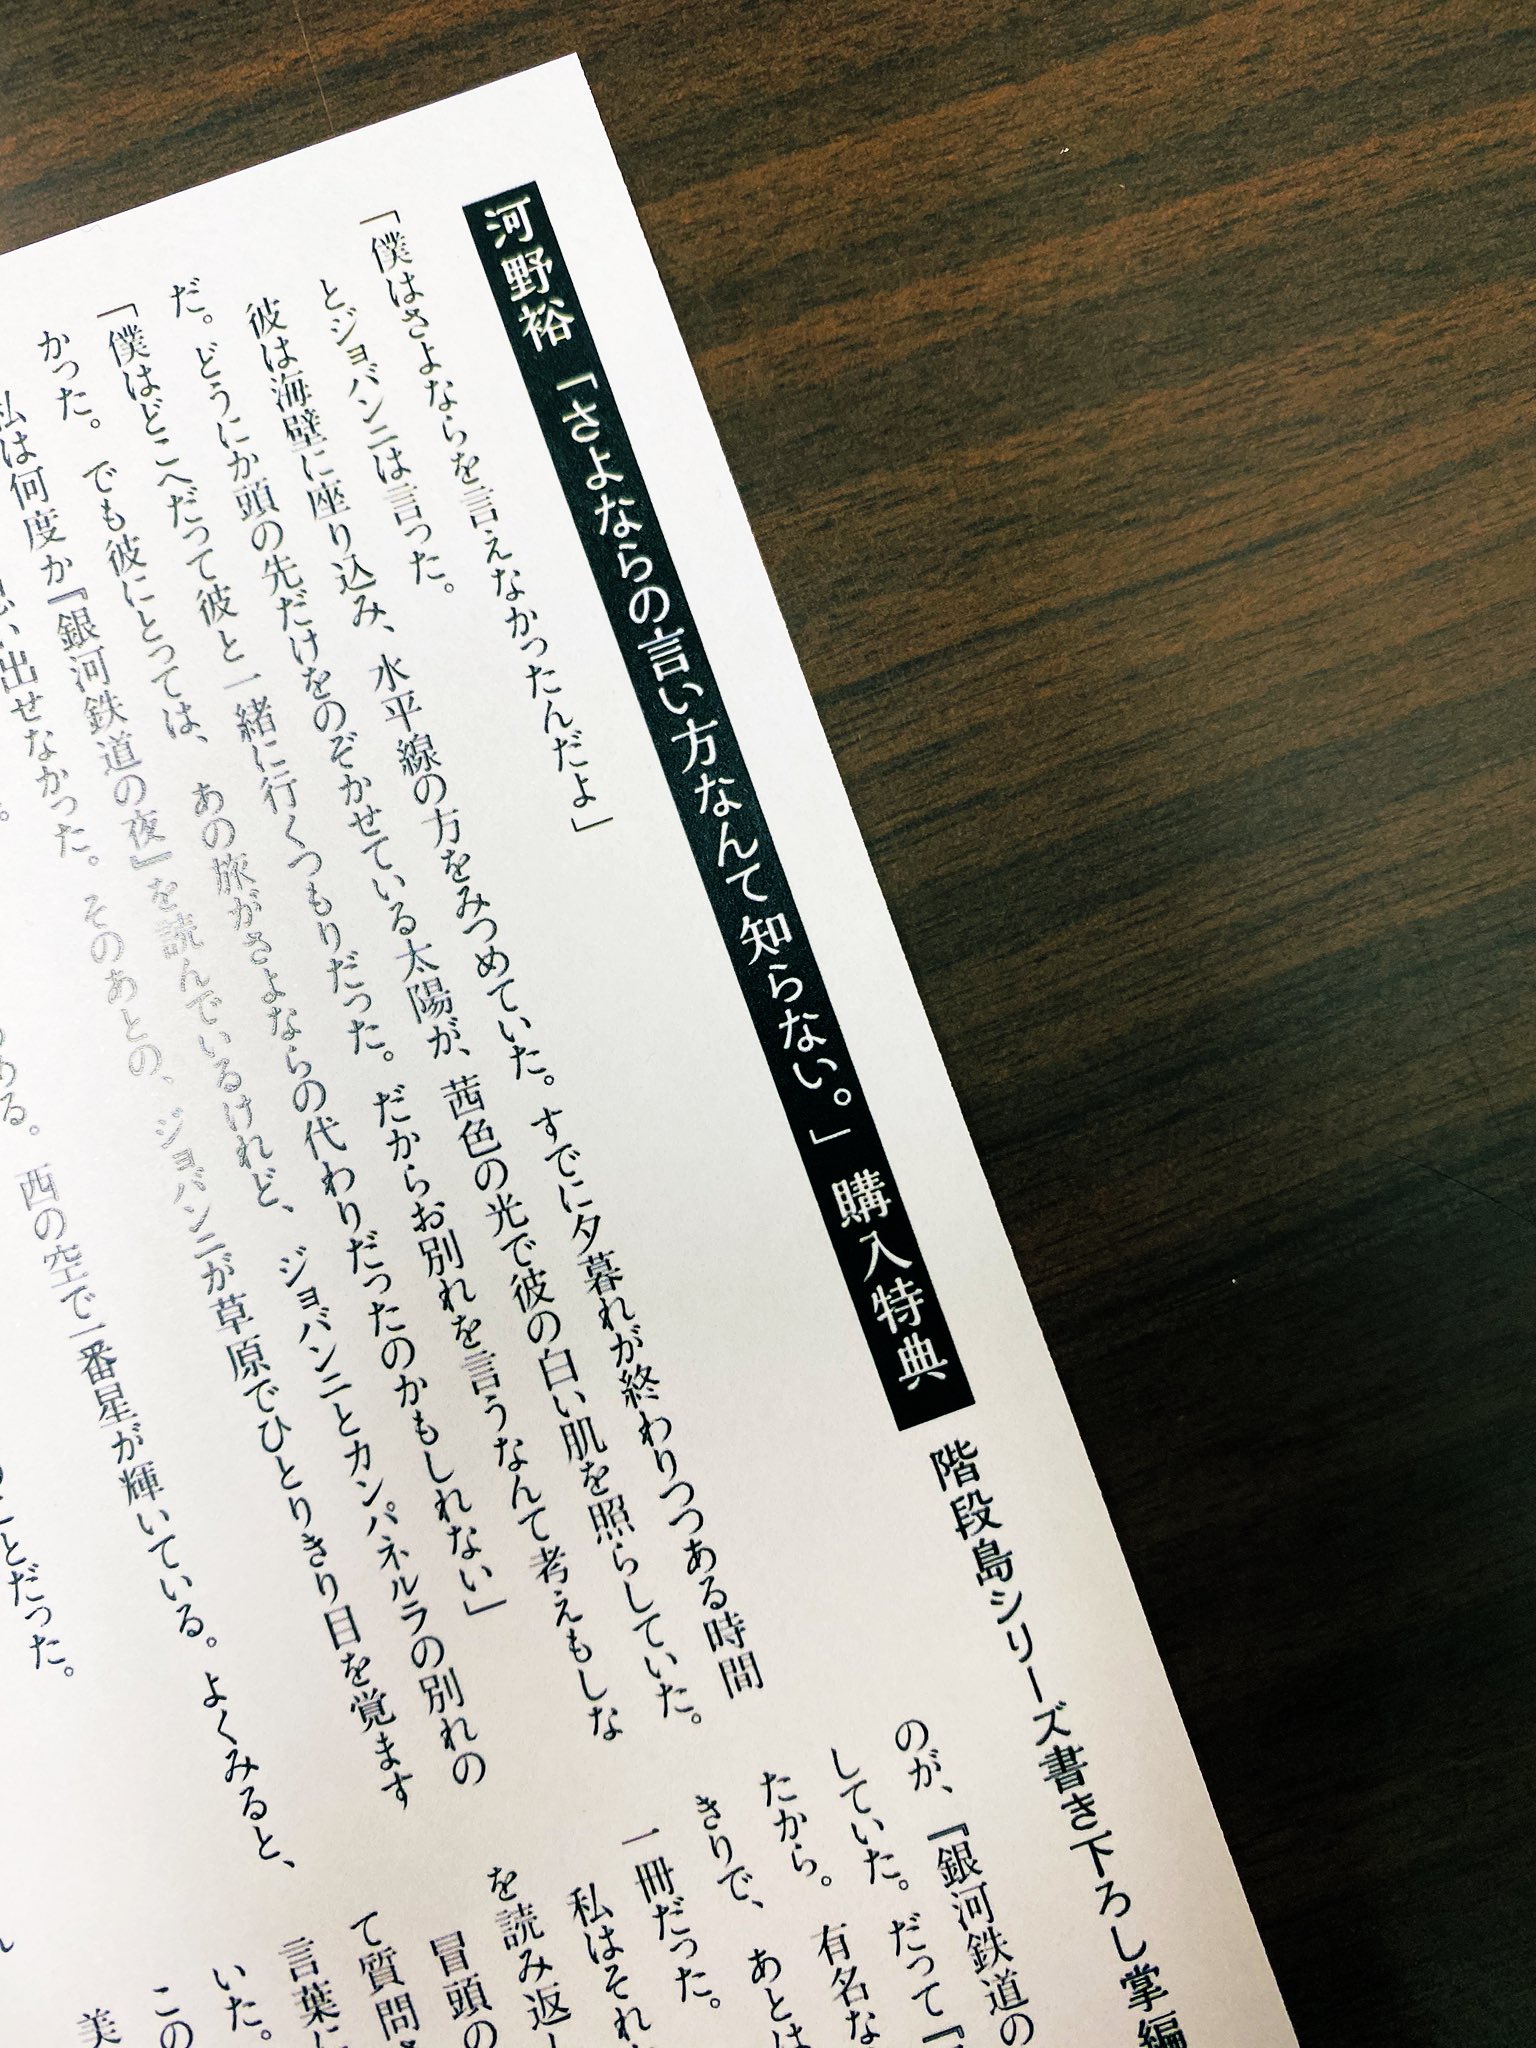 河野裕「さよならの言い方なんて知らない。」購入特典 階段島シリーズ書き下ろし掌編
「僕はさよならを言えなかったんだよ」
とジョバンニは言った。
彼は海壁に座り込み、水平線の方をみつめていた。すでに夕暮れが終わりつつある時間
だ。どうにか頭の先だけをのぞかせている太陽が、茜色の光で彼の白い肌を照らしていた。
「僕はどこへだって彼と一緒に行くつもりだった。だからお別れを言うなんて考えもしな
かった。でも彼にとっては、あの旅がさよならの代わりだったのかもしれない」
私は何度か『銀河鉄道の夜』を読んでいるけれど、ジョバンニとカンパネルラの別れの
思い出せなかった。そのあとの、ジョバンニが草原でひとりきり目を覚ます
める。西の空で一番星が輝いている。よくみると、
ことだった。
のが、『銀河鉄道の
していた。だって『
たから。有名な
きりで、あとは
一冊だった。
私はそれ
を読み返し
冒頭の
て質問
言葉に
いた。
この
美